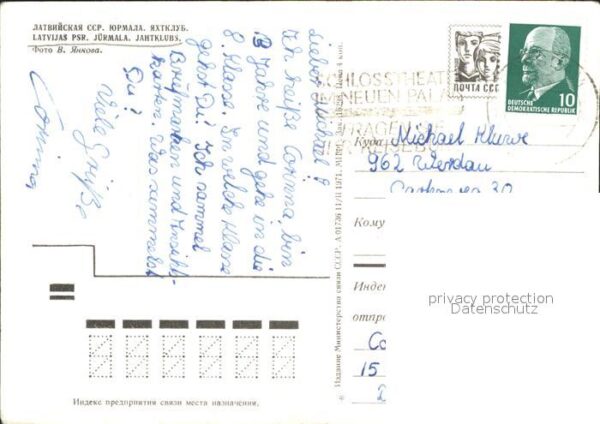 ЛАТВИЙСКАЯ ССР. ЮРМАЛА. ЯХТКЛУБ.
LATVIJAS PSR. JŪRMALA. JAHTKLUBS.
Фото В. Янкова.
Lieber Michael!
Ich heiße Corinna, bin
13 Jahre und gehe in die
8. Klasse. In welche Klasse
gehst Du? Ich sammel
Briefmarken und Ansichts-
karten. Was sammelst
Du?
Viele Grüße
Corinna
Издание Министерства связи СССР. А-01726 11/II 1971. Цена 4 коп.
SCHLOSSTHEATER
IM NEUEN PALAIS
ПОЧТА СССР
DEUTSCHE
DEMOKRATISCHE REPUBLIK
10
Куда
Michael
962 Werdau
30
Кому
Индек
отпра
Co
15
privacy protection
Datenschutz
Индекс предприятия связи места назначения.